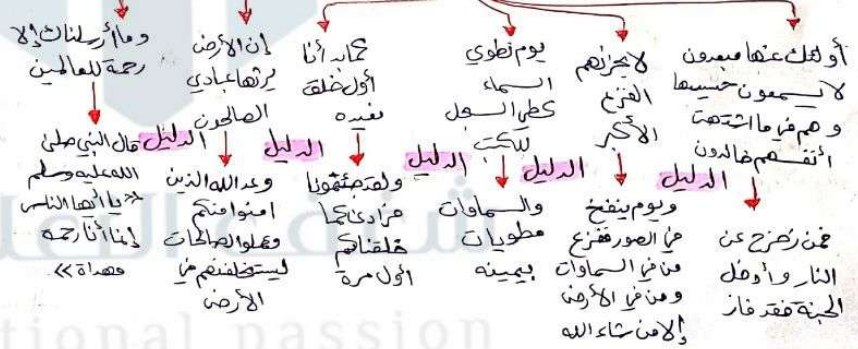 أولئك عنها مبعدون
لا يسمعون حسيسها
وهم في ما اشتهت
أنفسهم خالدون
الدليل
فمن زحزح عن
النار وأدخل
الجنة فقد فاز
لا يحزنهم
الفزع
الأكبر
الدليل
ويوم ينفخ
في الصور ففزع
من في السماوات
ومن في الأرض
إلا من شاء الله
يوم نطوي
السماء
كطي السجل
للكتب
الدليل
والسماوات
مطويات
بيمينه
كما بدأنا
أول خلق
نعيده
الدليل
ولقد جئتمونا
فرادى كما
خلقناكم
أول مرة
إن الأرض
يرثها عبادي
الصالحون
الدليل
وعد الله الذين
امنوا منكم
وعملوا الصالحات
ليستخلفنهم في
الأرض
وما أرسلناك إلا
رحمة للعالمين
قال النبي صلى
الله عليه وسلم
«يا أيها الناس
إنما أنا رحمة
مهداة»
tional passion